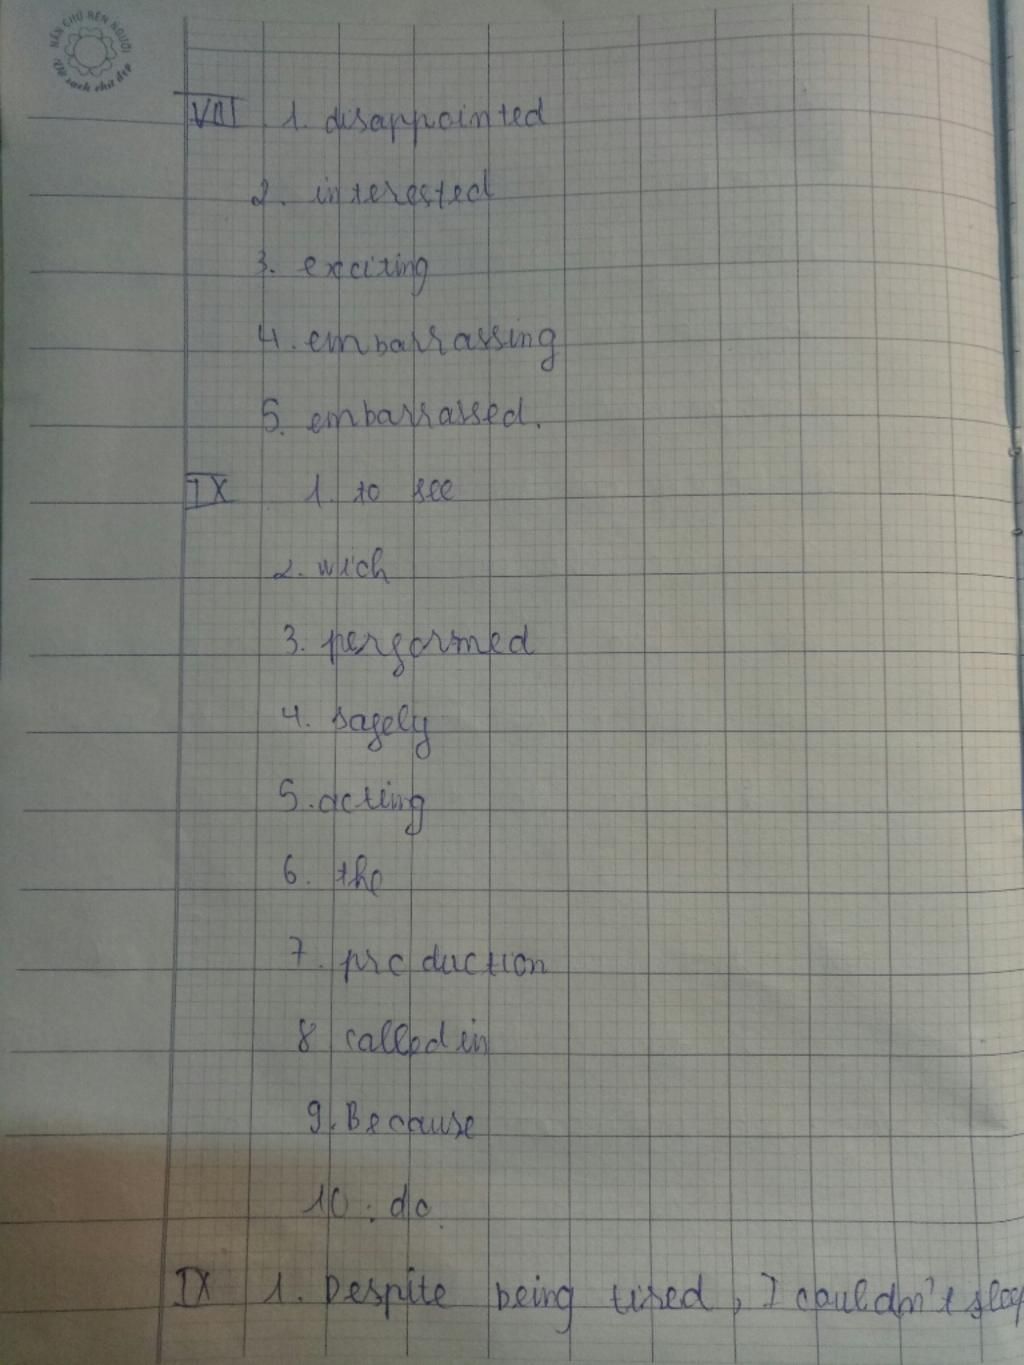 NẮN CHỮ RÈN NGƯỜI
Vở sạch chữ đẹp
VIII 1. disappointed
2. interested
3. exciting
4. embarrassing
5. embarrassed.
IX 1. to see
2. wich
3. performed
4. safely
5. acting
6. the
7. production
8 called in
9. Because
10. do.
IX 1. Despite being tired, I couldn't sleep